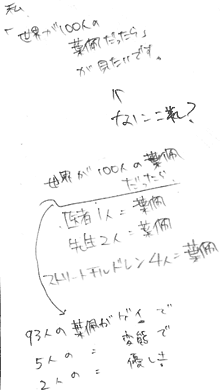 私
「世界が100人の
葉佩だったら」
が見たいです。
なにこれ?
世界が100人の葉佩
だったら
医者1人=葉佩
先生2人=葉佩
ストリートチルドレン4人=葉佩
93人の葉佩がゲイで
5人の 〃 変態で
2人の 〃 優しき